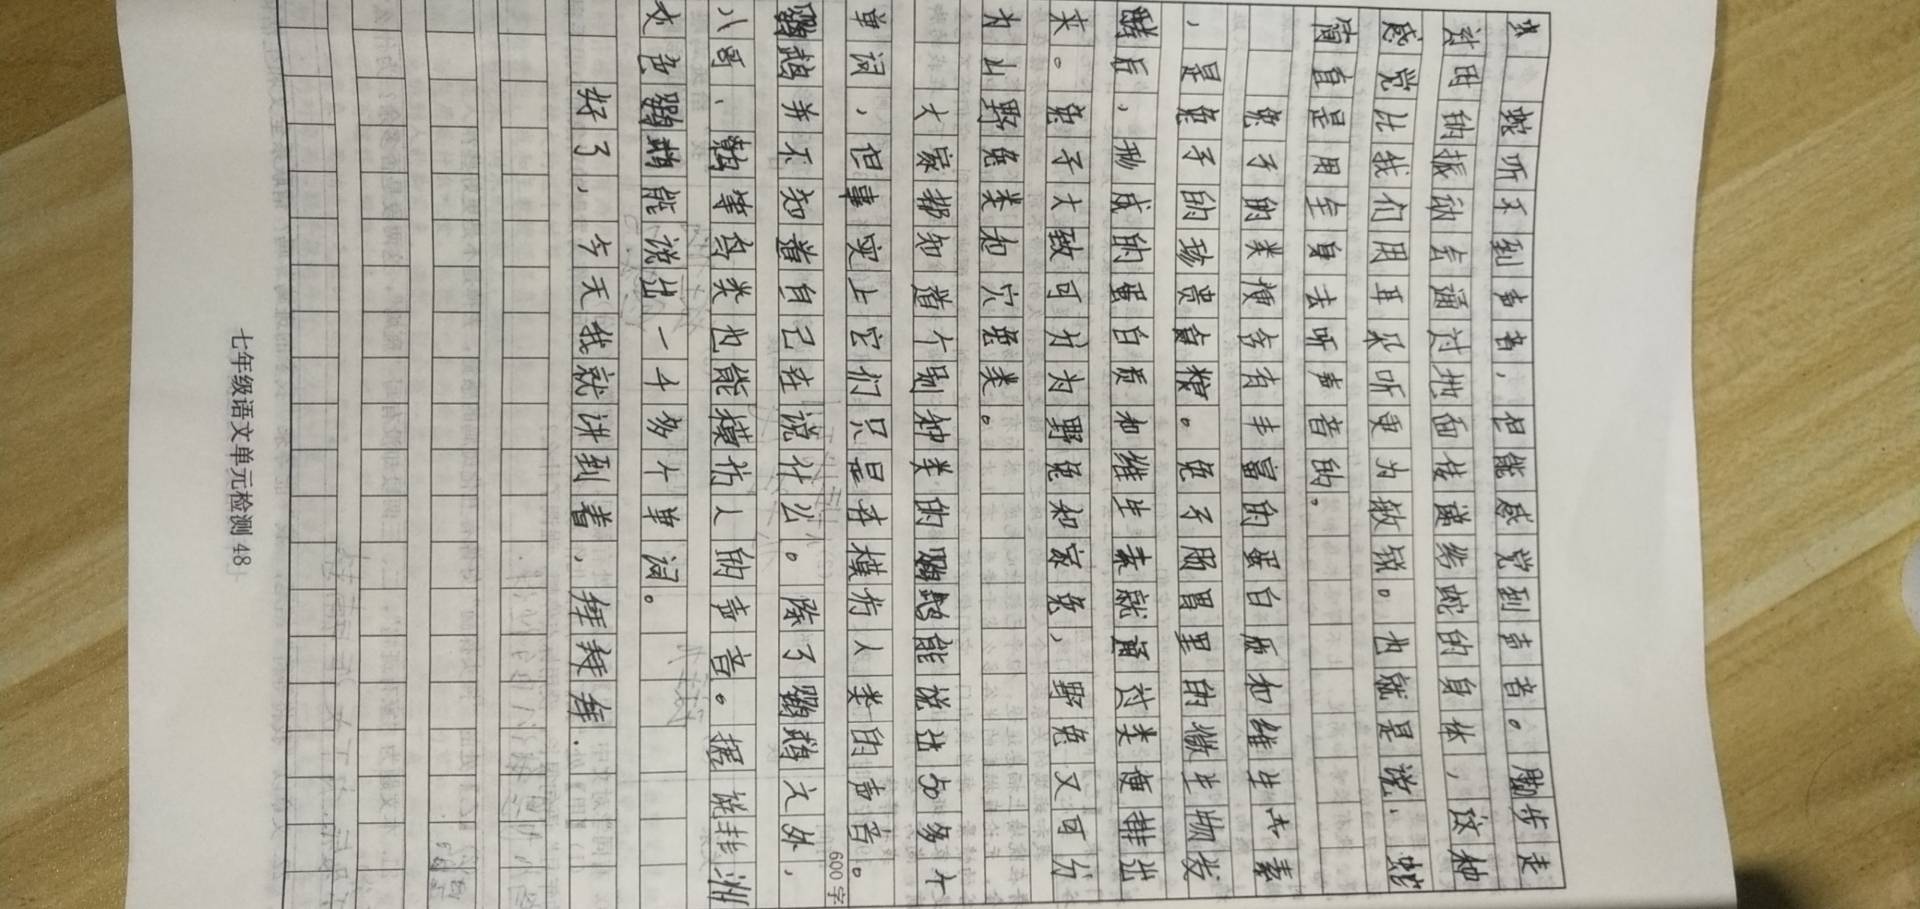 蛇听不到声音，但能感觉到声音。脚步走
过用的振动去通过地面传递给蛇的身体，这种
感觉比我们用耳朵听更为敏锐。也就是说，蛇
简直是用全身去听声音的。
兔子的粪便含有丰富的蛋白质和维生素
，是兔子的珍贵食粮。兔子肠胃里的微生物发
酵后，形成的蛋白质和维生素就通过粪便排出
来。兔子大致可分为野兔和家兔，野兔又可分
为山野兔类和穴兔类。
大家都知道个别种类的鹦鹉能说出好多个
单词，但事实上它们只是在模仿人类的声音。
600字
鹦鹉并不知道自己在说什么。除了鹦鹉之外，
八哥、鹩等鸟类也能模仿人的声音。据说非洲
灰色鹦鹉能说出一千多个单词。
好了，今天我就讲到着，拜拜拜.
七年级语文单元检测 48